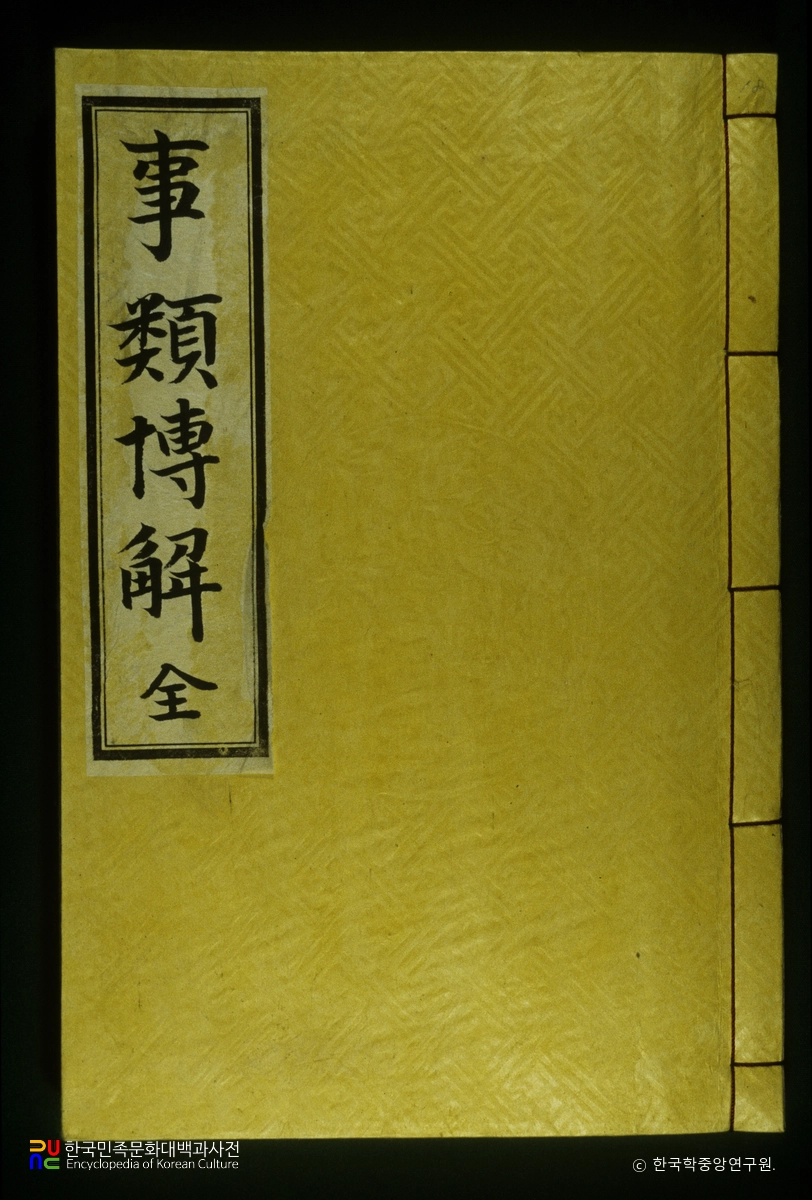 事類博解 全
한국민족문화대백과사전
Encyclopedia of Korean Culture
ⓒ 한국학중앙연구원.